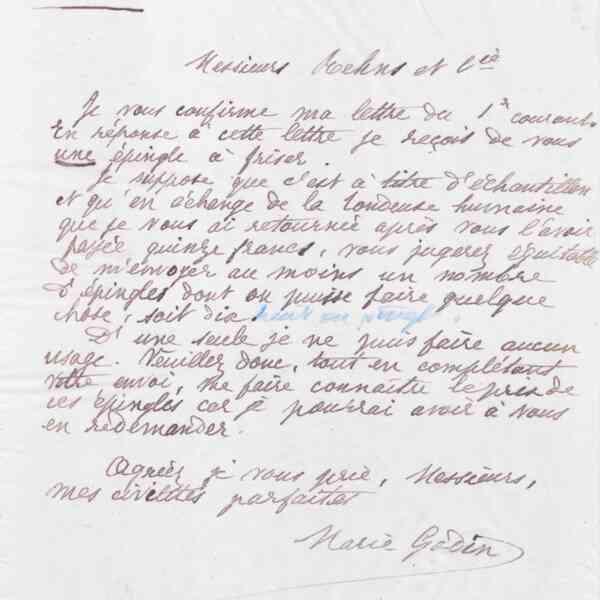 Messieurs et Cie
Je vous confirme ma lettre du 1er courant.
En réponse à cette lettre je reçois de vous
une épingle à friser.
Je suppose que c'est à titre d'échantillon
et qu'en échange de la tondeuse humaine
que je vous ai retournée après vous l'avoir
payée quinze francs, vous jugerez équitable
de m'envoyer au moins un nombre
d'épingles dont on puisse faire quelque
chose, soit dix
D'une seule je ne puis faire aucun
usage. Veuillez donc, tout en complétant
votre envoi, me faire connaitre le prix de
ces épingles car je pourrai avoir à vous
en redemander.
Agréez je vous prie, Messieurs,
mes civilités parfaites
Marie Godin